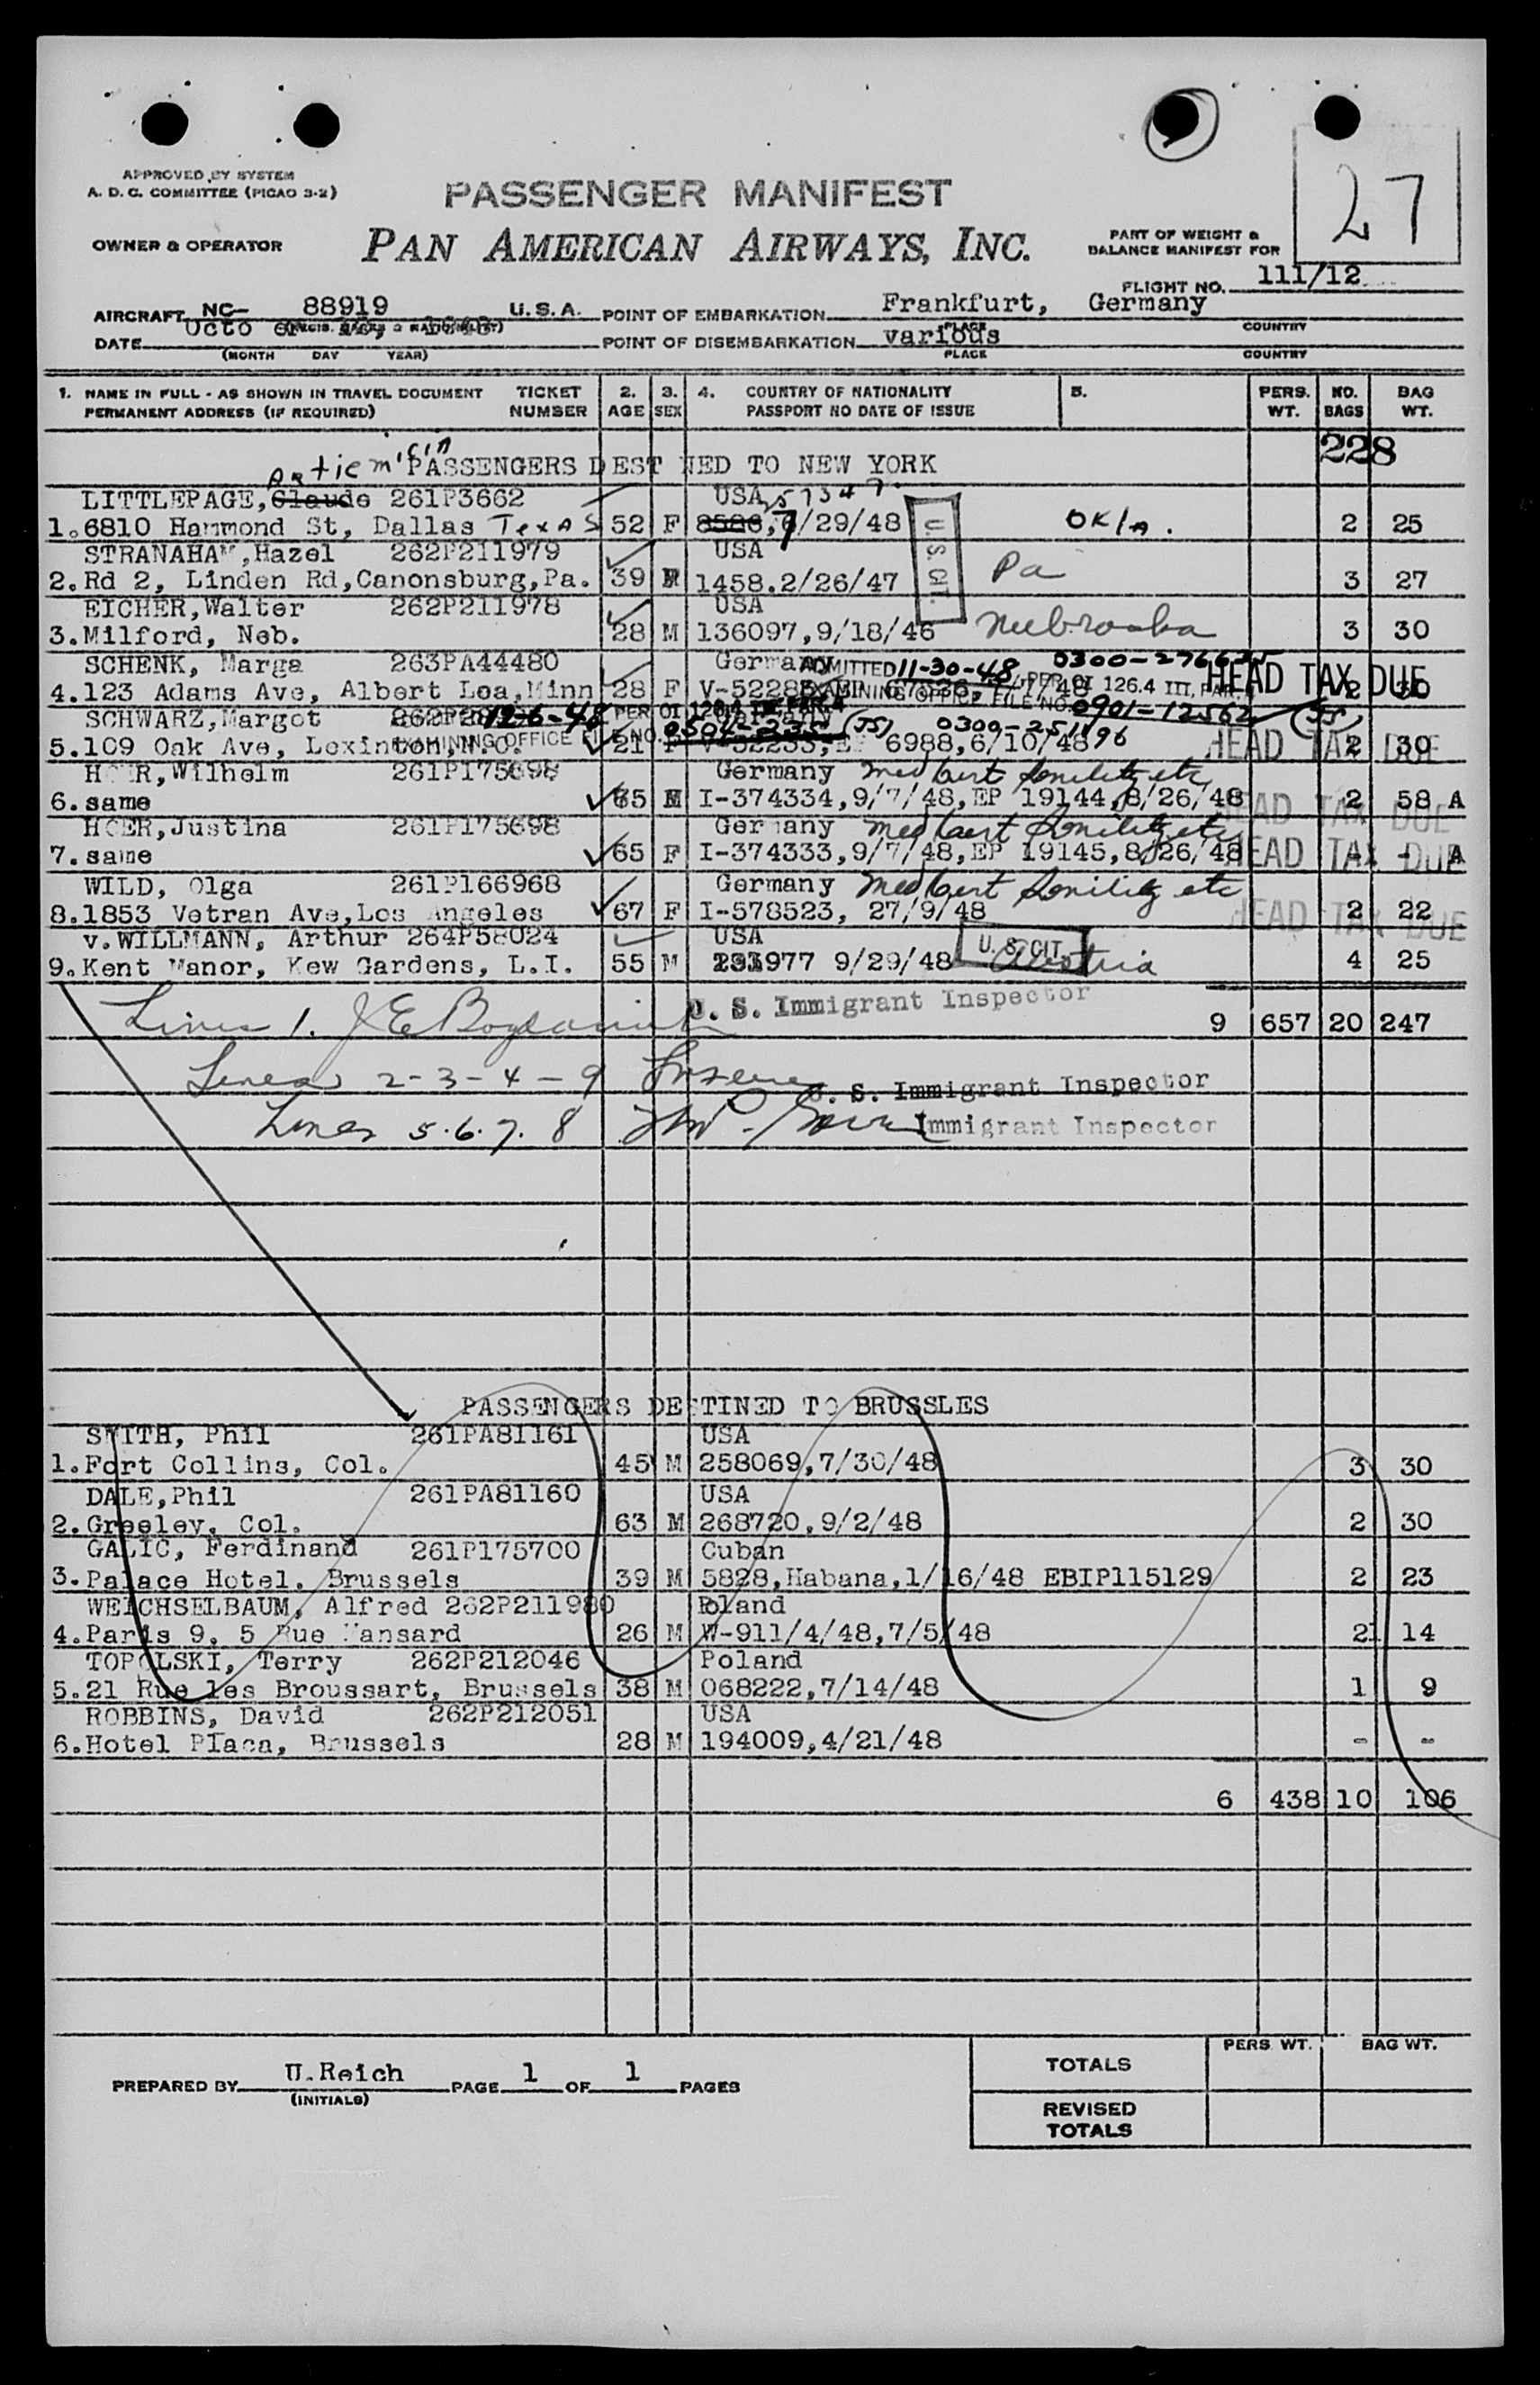 APPROVED BY SYSTEM
A. D. C. COMMITTEE (PICAO 3-2)
PASSENGER MANIFEST
27
OWNER & OPERATOR
PAN AMERICAN AIRWAYS, INC.
PART OF WEIGHT &
BALANCE MANIFEST FOR
FLIGHT NO. 111/12
AIRCRAFT NC- 88919 U.S.A. POINT OF EMBARKATION Frankfurt, Germany
PLACE COUNTRY
DATE Octo er POINT OF DISEMBARKATION various
(MONTH DAY YEAR) PLACE COUNTRY
1. NAME IN FULL - AS SHOWN IN TRAVEL DOCUMENT TICKET 2. 3. 4. COUNTRY OF NATIONALITY 5. PERS. NO. BAG
PERMANENT ADDRESS (IF REQUIRED) NUMBER AGE SEX PASSPORT NO DATE OF ISSUE WT. BAGS WT.
228
PASSENGERS DEST NED TO NEW YORK
LITTLEPAGE, Claude 261P3662 USA
1.6810 Hammond St, Dallas Texas 52 F 8586, /29/48 U.S.CIT. Okla. 2 25
STRANAHAN, Hazel 262P211979 USA
2.Rd 2, Linden Rd,Canonsburg,Pa. 39 1458.2/26/47 Pa 3 27
EICHER,Walter 262P211978 USA
3.Milford, Neb. 28 M 136097,9/18/46 Nebraska 3 30
SCHENK, Marga 263PA44480 Germany ADMITTED 11-30-48 PER OI 126.4 III, PAR. HEAD TAX DUE
4.123 Adams Ave, Albert Lea,Minn 28 F EXAMINING OFFICE FILE NO. 0901-12562 2 30
SCHWARZ,Margot 12-6-48 PER OI 126.4 Germany (JS)
5.109 Oak Ave, Lexinton,N.C. EXAMINING OFFICE FILE NO. 21 F 6988,6/10/48 HEAD TAX DUE 2 30
HOER,Wilhelm 261P175698 Germany med cert senility etc
6.same 65 M I-374334,9/7/48,EP 19144,8/26/48 HEAD TAX DUE 2 58 A
HOER,Justina 261P175698 Germany med cert senility etc
7.same 65 F I-374333,9/7/48,EP 19145,8/26/48 HEAD TAX DUE - - A
WILD, Olga 261P166968 Germany med cert senility etc
8.1853 Vetran Ave,Los Angeles 67 F I-578523, 27/9/48 HEAD TAX DUE 2 22
v.WILLMANN, Arthur 264P58024 USA U. S. CIT.
9.Kent Manor, Kew Gardens, L.I. 55 M 977 9/29/48 Austria 4 25
Lines 1. U. S. Immigrant Inspector
9 657 20 247
Lines 2-3-4-9 U. S. Immigrant Inspector
Lines 5.6.7.8 Immigrant Inspector
PASSENGERS DESTINED TO BRUSSLES
SMITH, Phil 261PA81161 USA
1.Fort Collins, Col. 45 M 258069,7/30/48 3 30
DALE,Phil 261PA81160 USA
2.Greeley, Col. 63 M 268720,9/2/48 2 30
GALIC, Ferdinand 261P175700 Cuban
3.Palace Hotel, Brussels 39 M 5828,Habana,1/16/48 EBIP115129 2 23
WEICHSELBAUM, Alfred 262P211980 Poland
4.Paris 9, 5 Rue Mansard 26 M W-911/4/48,7/5/48 2 14
TOPOLSKI, Terry 262P212046 Poland
5.21 Rue les Broussart, Brussels 38 M 068222,7/14/48 1 9
ROBBINS, David 262P212051 USA
6.Hotel Plaza, Brussels 28 M 194009,4/21/48 - -
6 438 10 106
PREPARED BY U.Reich PAGE 1 OF 1 PAGES
(INITIALS)
PERS. WT. BAG WT.
TOTALS
REVISED
TOTALS